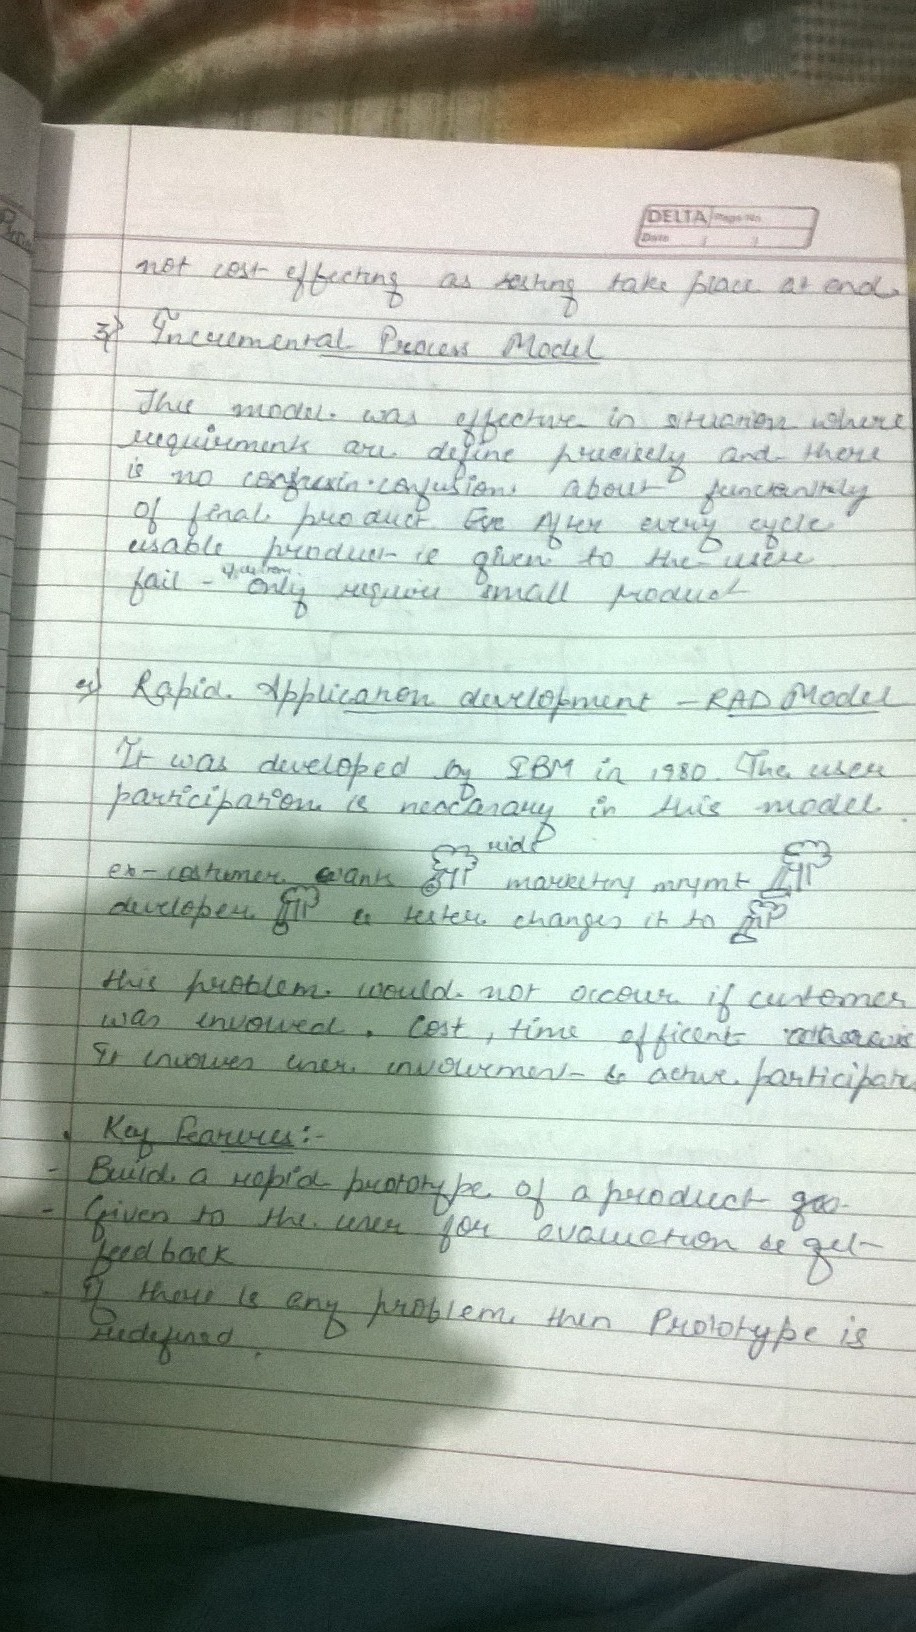 DELTA Page No.
Date / /
not cost effecting as testing take place at end.
3) Incremental Process Model
This model was effective in situation where
requirments are define precisely and there
is no confusion about
of final product Eve After every cycle
usable product is given to the user
fail - only require small product
Rapid Application development - RAD Model
It was developed by IBM in 1980. The user
participation is in this model
ex- costumer wants marketing mngmt
developer & tester changes it to
this problem would not occour if customer
was involved. Cost, time efficent
It involves user involvement & active participate
Key Features:-
- Build a rapid prototype of a product
- Given to the user for evaluction & get
feedback
- If there is any problem then Prototype is
redefined.